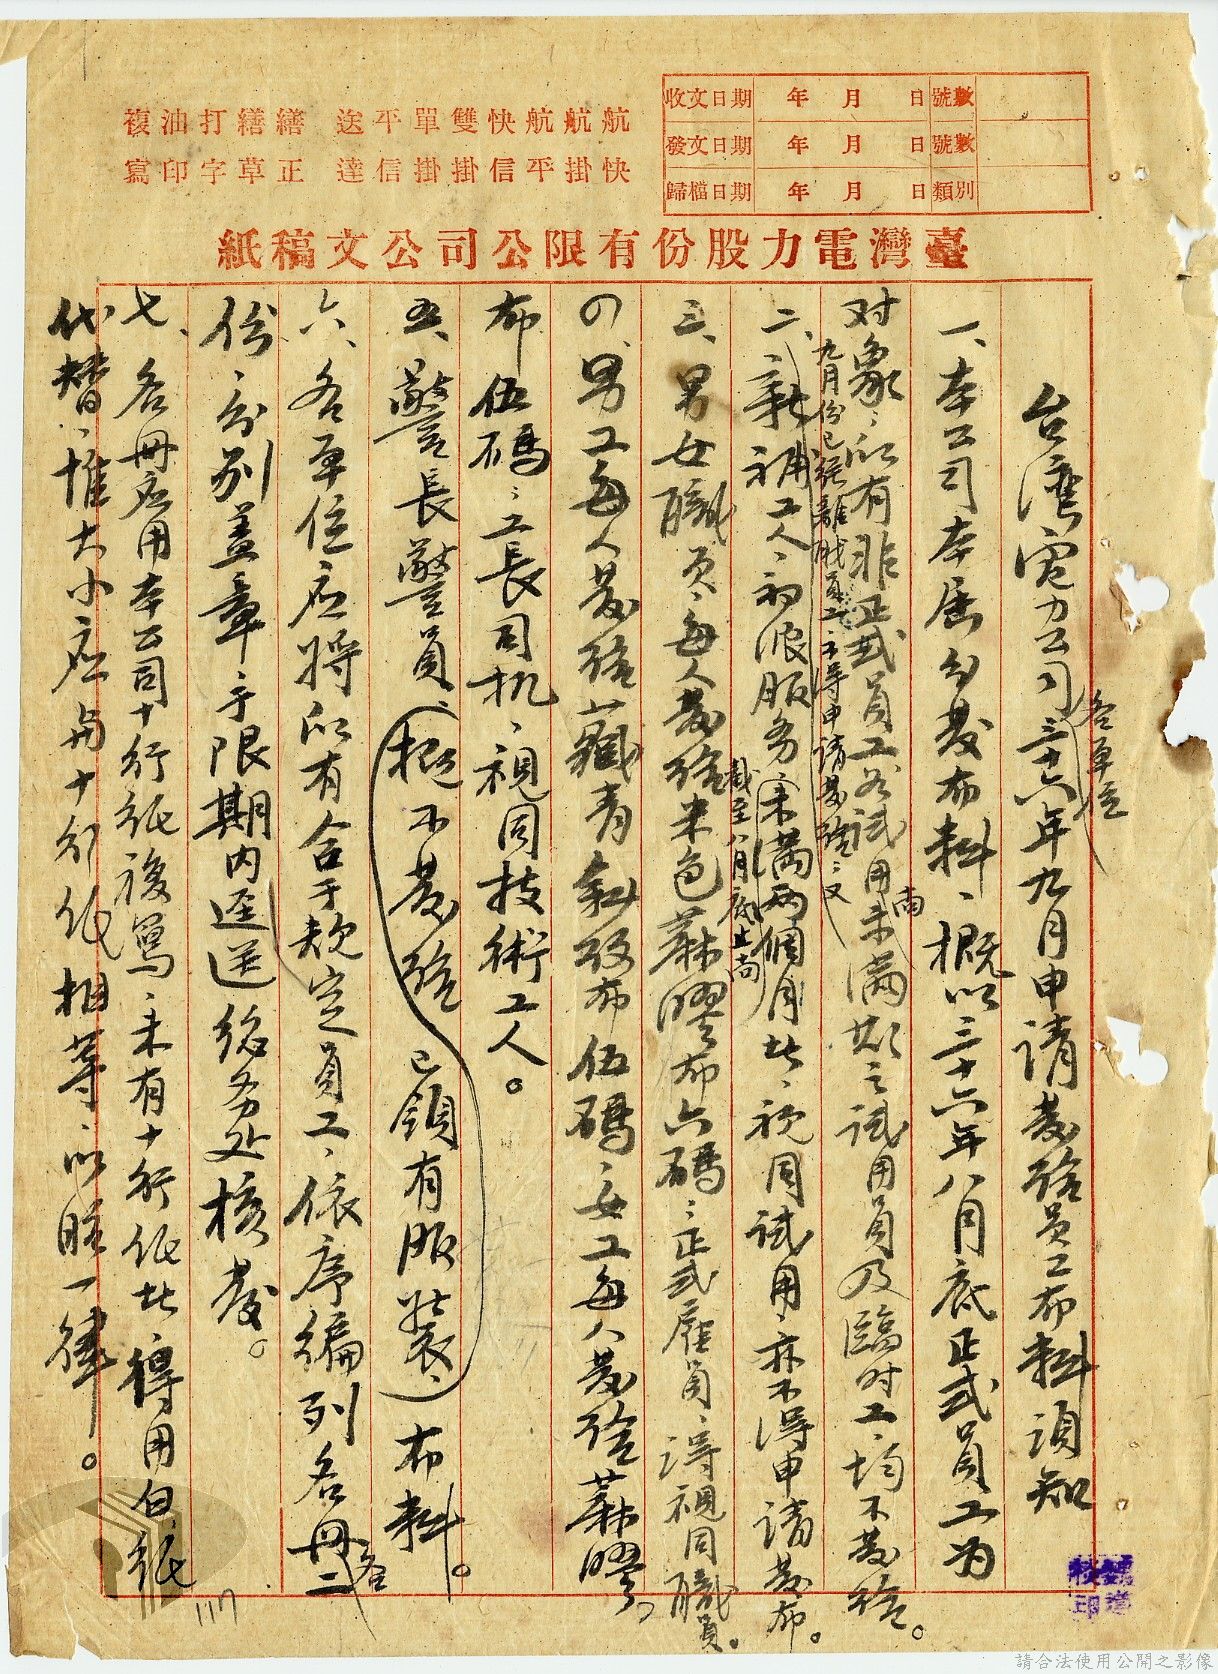 收文日期 年 月 日 號數
發文日期 年 月 日 號數
歸檔日期 年 月 日 類別
航快 航掛 航平 快信 雙掛 單掛 平信 送達 繕正 繕草 打字 油印 複寫
臺灣電力股份有限公司公文稿紙
台灣電力公司三十六年九月申請發給員工布料須知
各單位
一、本公司本屆分發布料、概以三十六年八月底正式員工为
对象、所有非正式員工如試用未滿期之試用員及臨时工、均不發給。
尚
九月份已經離職員工不得申請發給、又
二、新補工人、初派服务未滿兩個月此、視同試用、亦不得申請發布。
截至八月底止尚
三、男女職员、每人發給米色蔴膠布六碼、正式雇員、得視同職員。
の、男工每人發給藏青斜紋布伍碼、女工每人發給蔴膠
布伍碼、工長司机、視同技術工人。
五、警長警員、(概不發給 已領有服裝、)布料。
六、各單位应將所有合于规定員工、依序編列名冊二
各
份、分別盖章、于限期内逕送總务处核發。
七、名冊应用本公司十行紙複寫、未有十行紙此得用白紙
代替、惟大小应与十行紙相等、以昭一律。
117
校印
請合法使用公開之影像